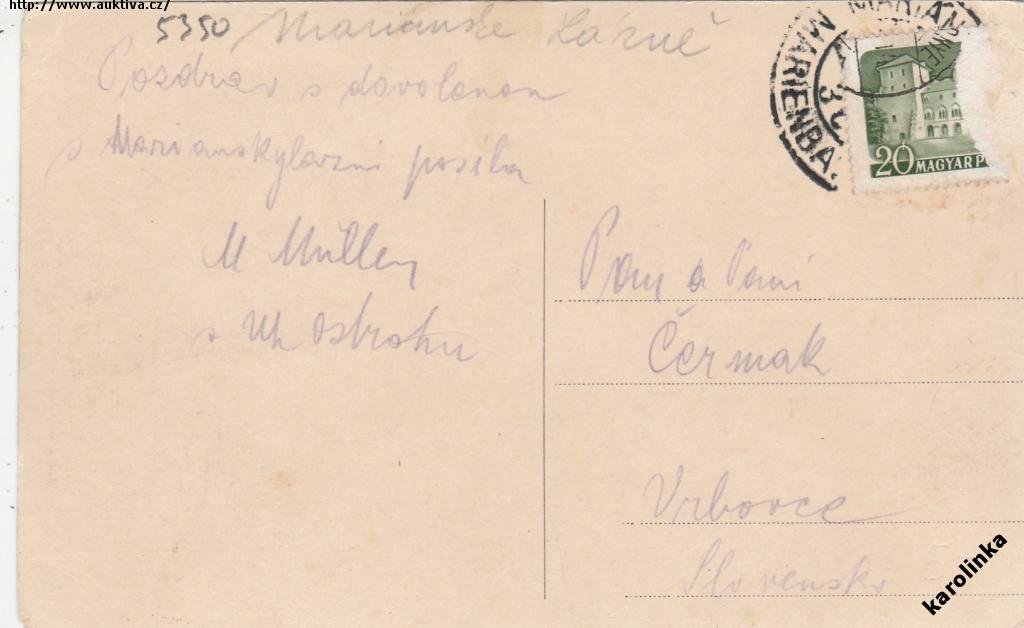 http://www.auktiva.cz/
5350 Marianske Lázně
Pozdrav s dovolenou
s Marianskylazni posila
M Müller
s Uh Ostrohu
MARIÁN
MARIENBA
20 MAGYAR P
Pan a Pani
Čermak
Vrbovce
Slovensko
karolinka